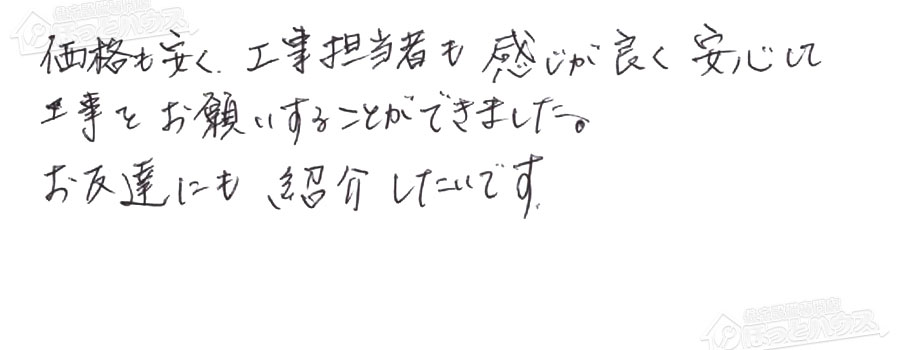 価格も安く、工事担当者も感じが良く安心して
工事をお願いすることができました。
お友達にも紹介したいです。
ほっとハウス
ほっとハウス